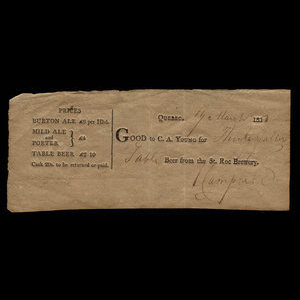 PRICES
BURTON ALE £8 per Hhd.
MILD ALE
and
PORTER } £4
TABLE BEER £2 10
Cask 20s. to be returned or paid.
QUEBEC, March 181
GOOD to C. A. YOUNG for
Table Beer from the St. Roc Brewery.